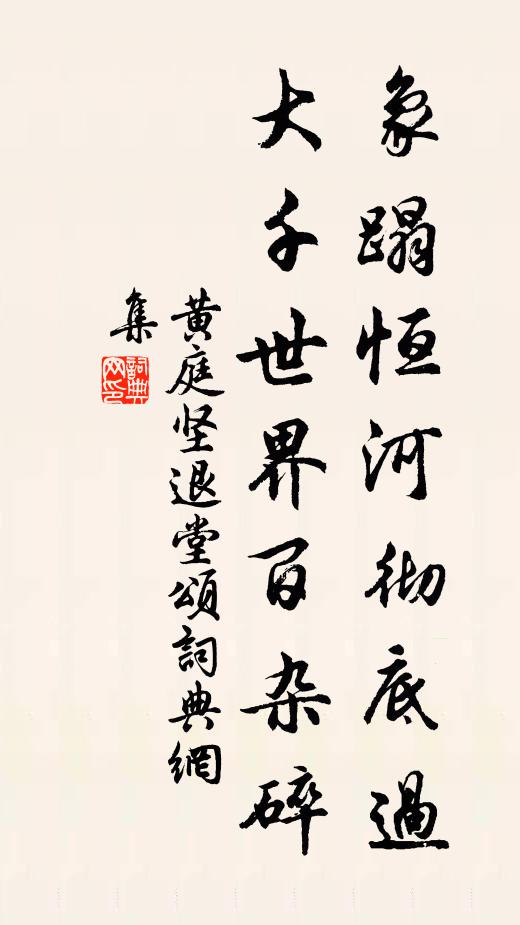 象蹋恒河彻底過
大千世界百杂碎
黄庭坚退堂颂詞典網
集
詞典網印